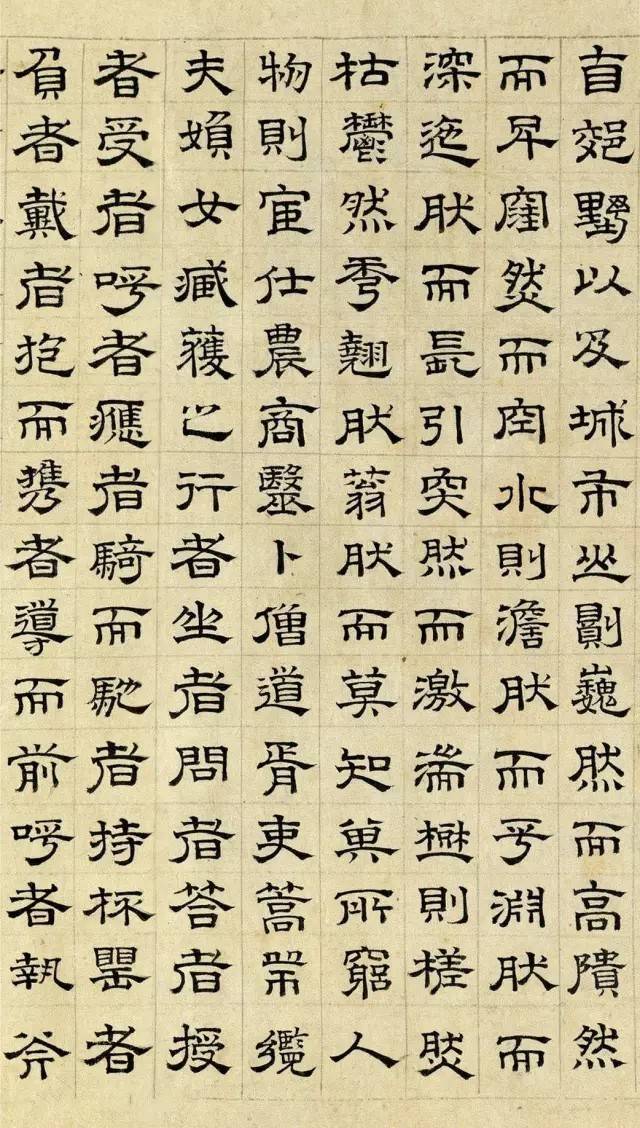 自郊墅以及城市山則巍然而高隤然
而卑窪然而空水則澹然而平淵然而
深迤然而長引突然而激湍樹則槎然
枯鬱然秀翹然蓊然而莫知其所窮人
物則官仕農商醫卜僧道胥吏篙師纜
夫婦女臧獲之行者坐者問者答者授
者受者呼者應者騎而馳者持杯罌者
負者戴者抱而攜者導而前呼者執斧